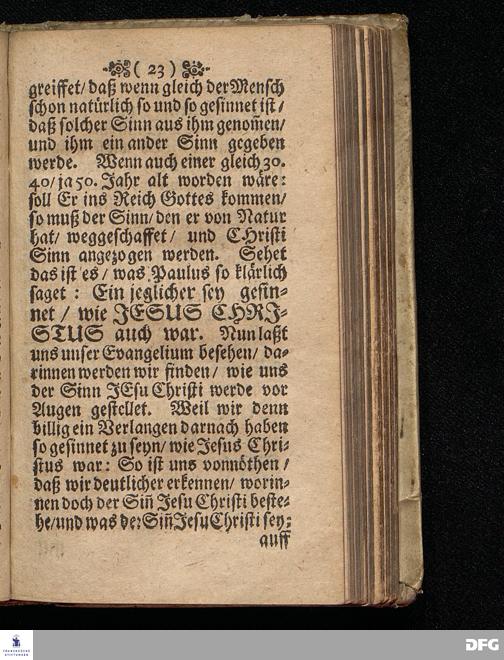 ( 23 )
greiffet/ daß wenn gleich der Mensch
schon natürlich so und so gesinnet ist /
daß solcher Sinn aus ihm genom̄en/
und ihm ein ander Sinn gegeben
werde. Wenn auch einer gleich 30.
40/ ja 50. Jahr alt worden wäre:
soll Er ins Reich Gottes kommen/
so muß der Sinn/ den er von Natur
hat/ weggeschaffet/ und CHristi
Sinn angezogen werden. Sehet
das ist es / was Paulus so klärlich
saget : Ein jeglicher sey gesin-
net / wie JESUS CHRI-
STUS auch war. Nun laßt
uns unser Evangelium besehen/ da-
rinnen werden wir finden/ wie uns
der Sinn JEsu Christi werde vor
Augen gestellet. Weil wir denn
billig ein Verlangen darnach haben
so gesinnet zu seyn/ wie Jesus Chri-
stus war: So ist uns vonnöthen /
daß wir deutlicher erkennen/ worin-
nen doch der Sin̄ Jesu Christi beste-
he/ und was der Sin̄ Jesu Christi sey:
auff
FRANCKESCHE
STIFTUNGEN
DFG